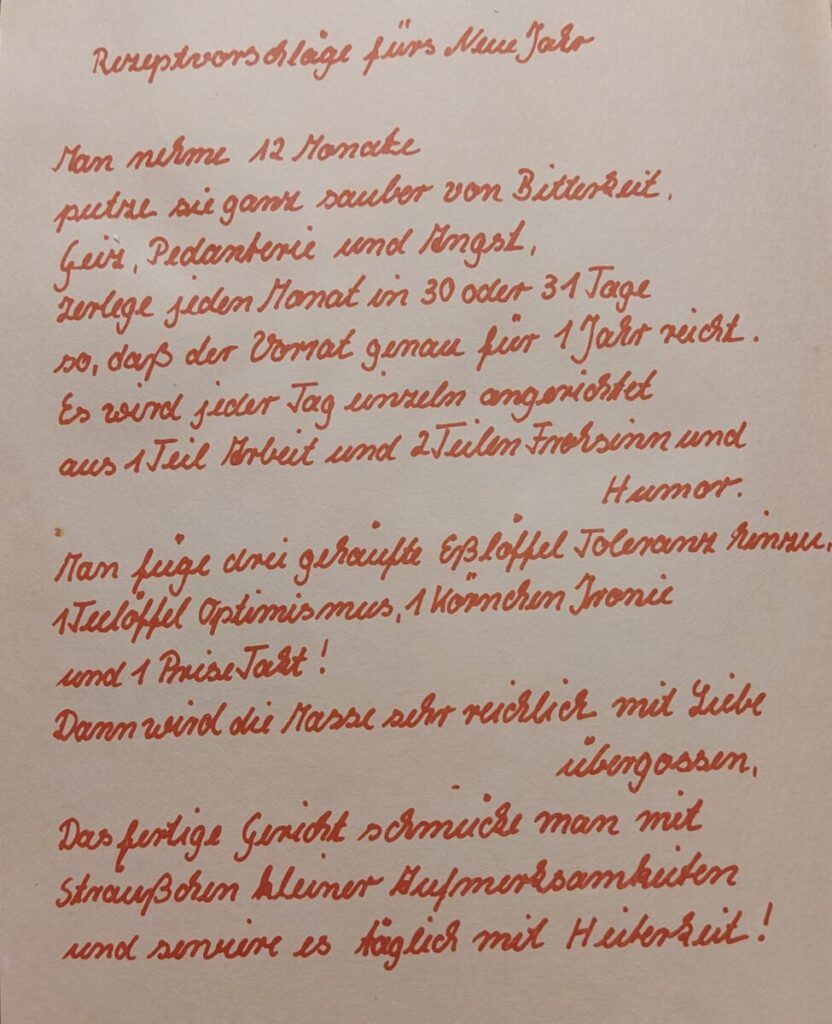 Rezeptvorschläge fürs Neue Jahr
Man nehme 12 Monate
putze sie ganz sauber von Bitterkeit,
Geiz, Pedanterie und Angst,
zerlege jeden Monat in 30 oder 31 Tage
so, daß der Vorrat genau für 1 Jahr reicht.
Es wird jeder Tag einzeln angerichtet
aus 1 Teil Arbeit und 2 Teilen Frohsinn und
Humor.
Man füge drei gehäufte Eßlöffel Toleranz hinzu,
1 Teelöffel Optimismus, 1 Körnchen Ironie
und 1 Prise Takt!
Dann wird die Masse sehr reichlich mit Liebe
übergossen.
Das fertige Gericht schmücke man mit
Sträußchen kleiner Aufmerksamkeiten
und serviere es täglich mit Heiterkeit!